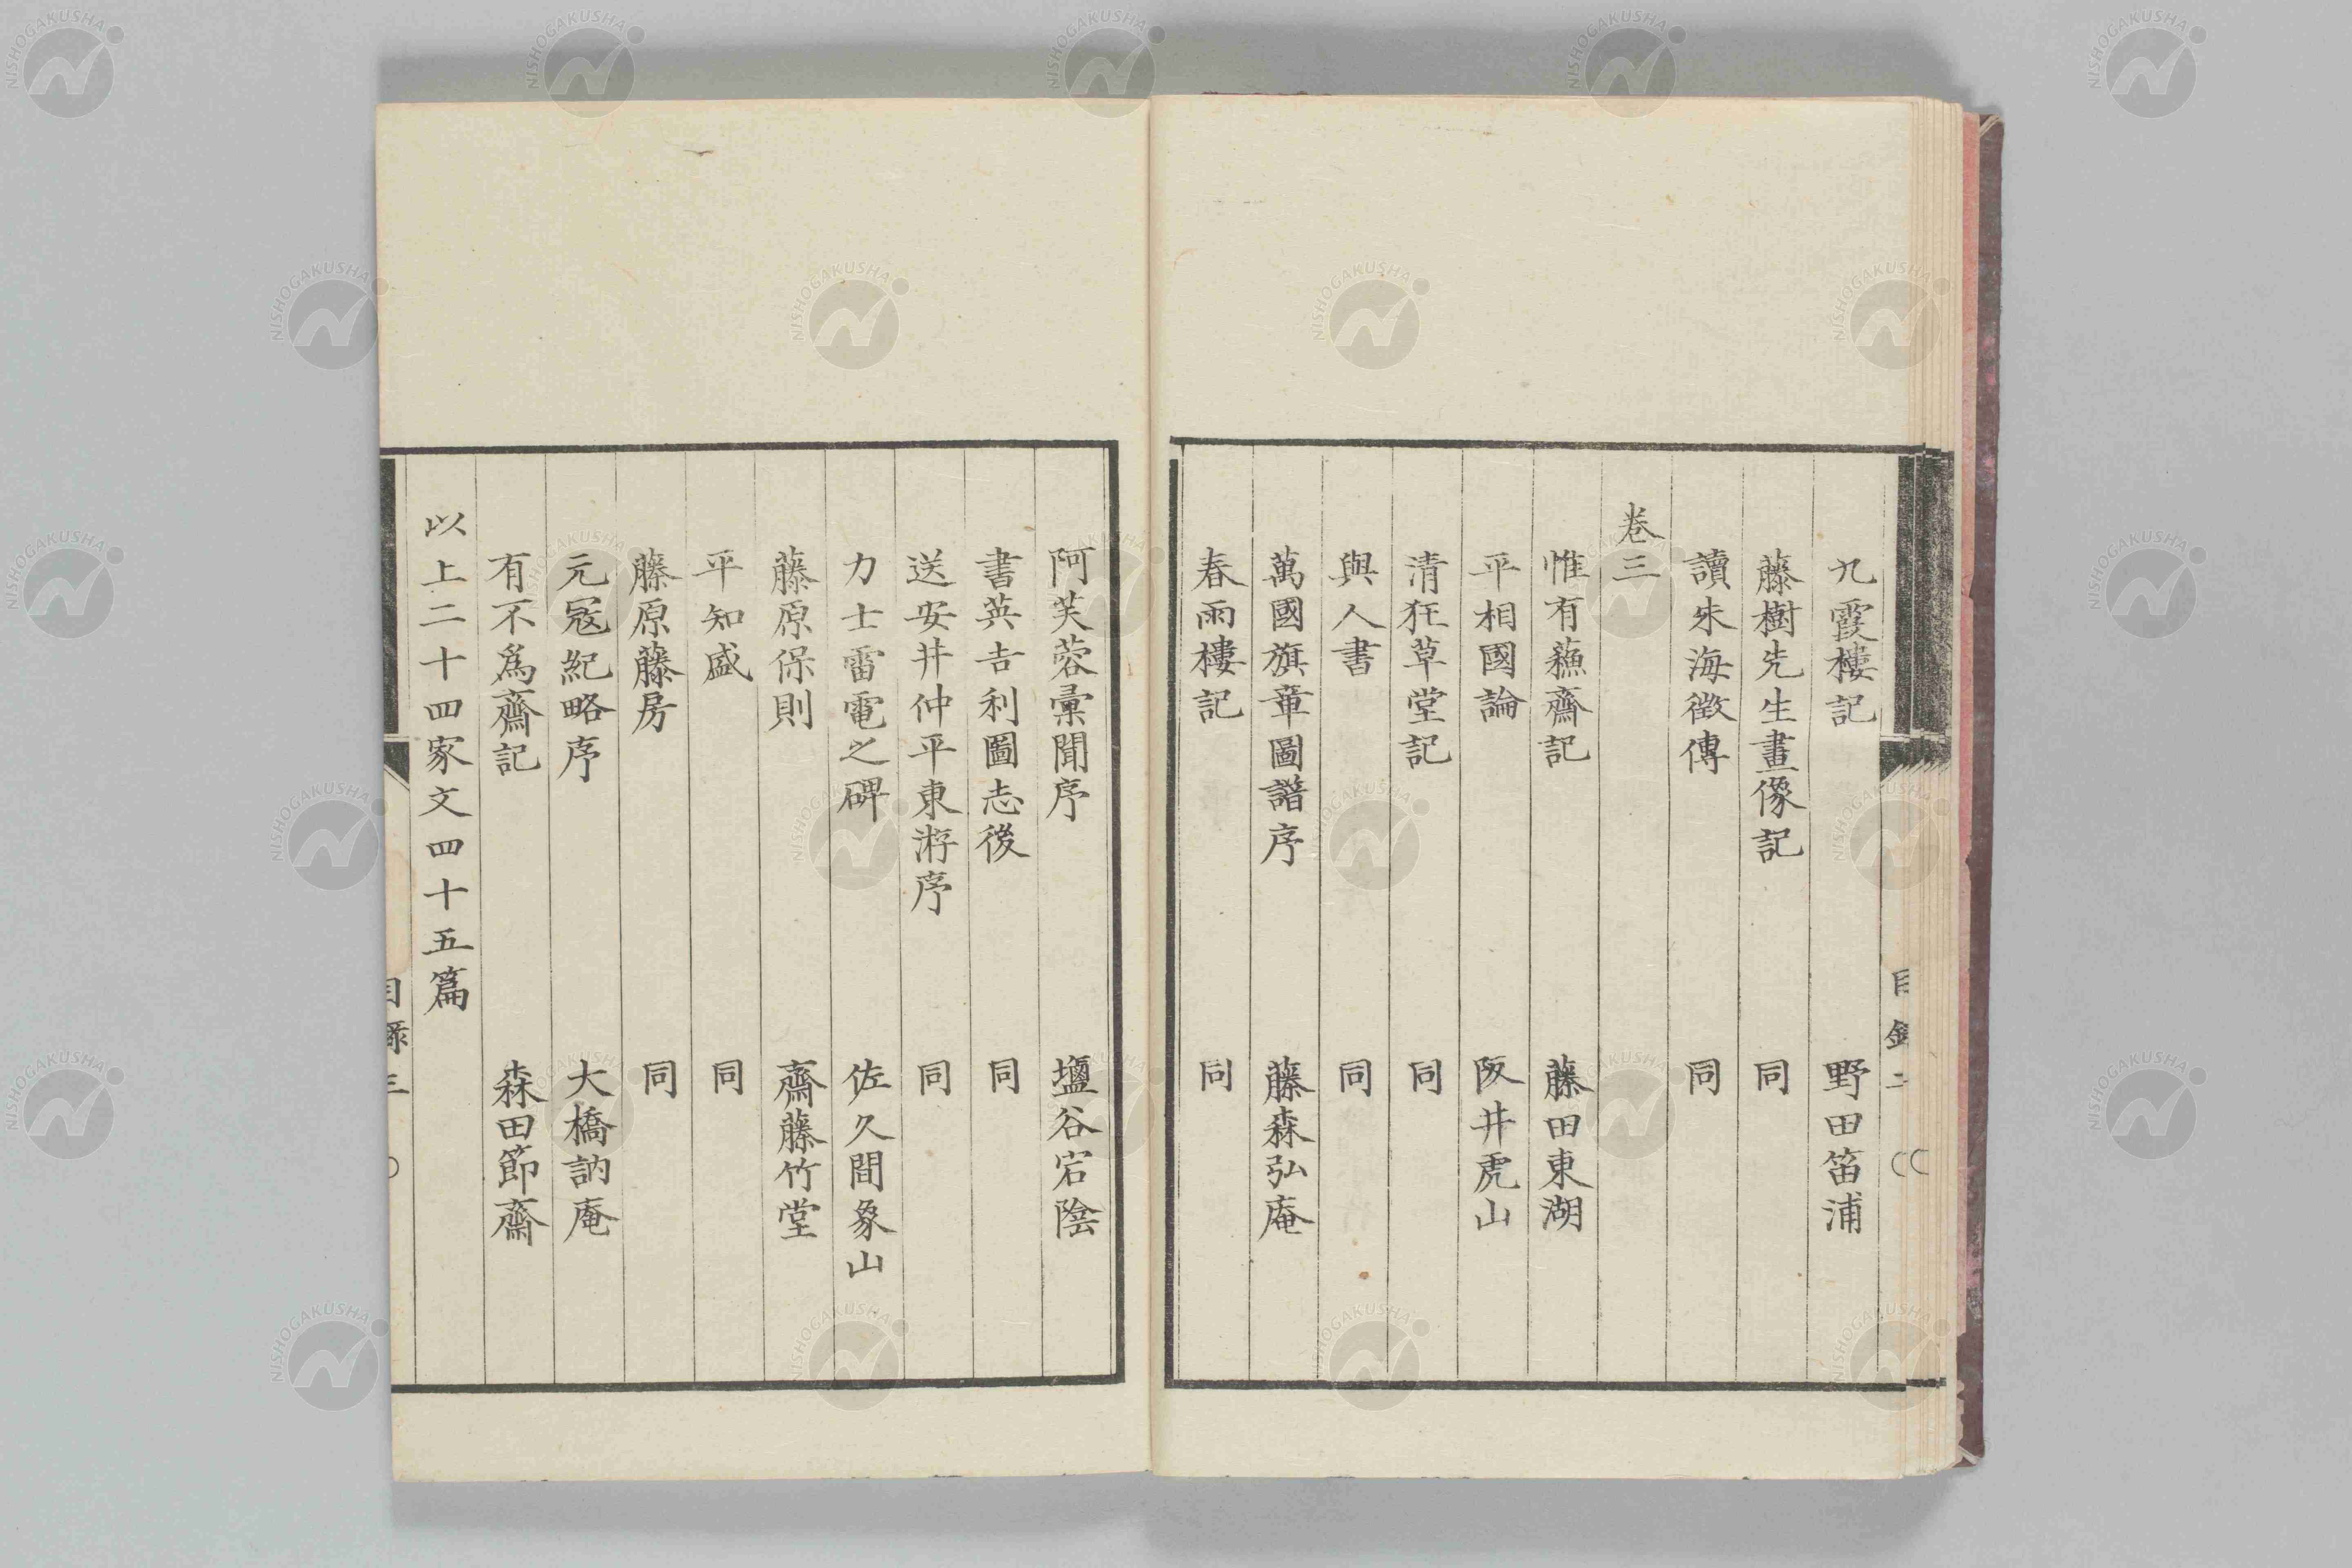 九霞樓記　野田笛浦
藤樹先生畫像記　同
讀朱海徵傳　同
卷三
惟有蘓齋記　藤田東湖
平相國論　阪井虎山
清狂草堂記　同
與人書　同
萬國旗章圖譜序　藤森弘庵
春雨樓記　同
目錄二
阿芙蓉彙聞序　鹽谷宕陰
書英吉利圖志後　同
送安井仲平東游序　同
力士雷電之碑　佐久間象山
藤原保則　齋藤竹堂
平知盛　同
藤原藤房　同
元寇紀略序　大橋訥庵
有不爲齋記　森田節齋
以上二十四家文四十五篇
目錄三
NISHOGAKUSHA